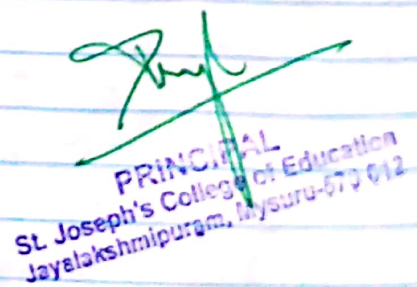 PRINCIPAL
St. Joseph's College of Education
Jayalakshmipuram, Mysuru-570 012